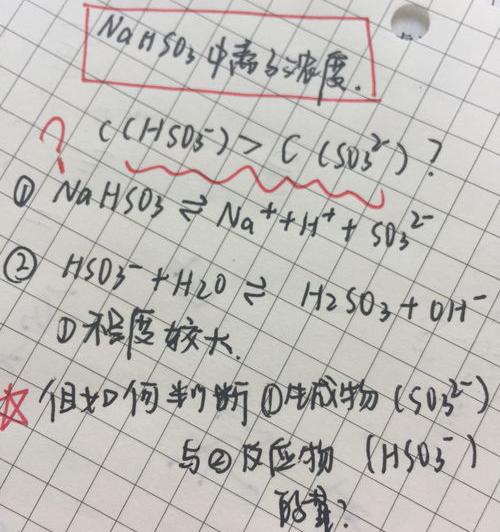 NaHSO₃中离子浓度.
? C(HSO₃⁻) > C(SO₃²⁻)?
① NaHSO₃ ⇌ Na⁺ + H⁺ + SO₃²⁻
② HSO₃⁻ + H₂O ⇌ H₂SO₃ + OH⁻
①程度较大.
☆ 但如何判断①生成物(SO₃²⁻)
与②反应物(HSO₃⁻)
的量?